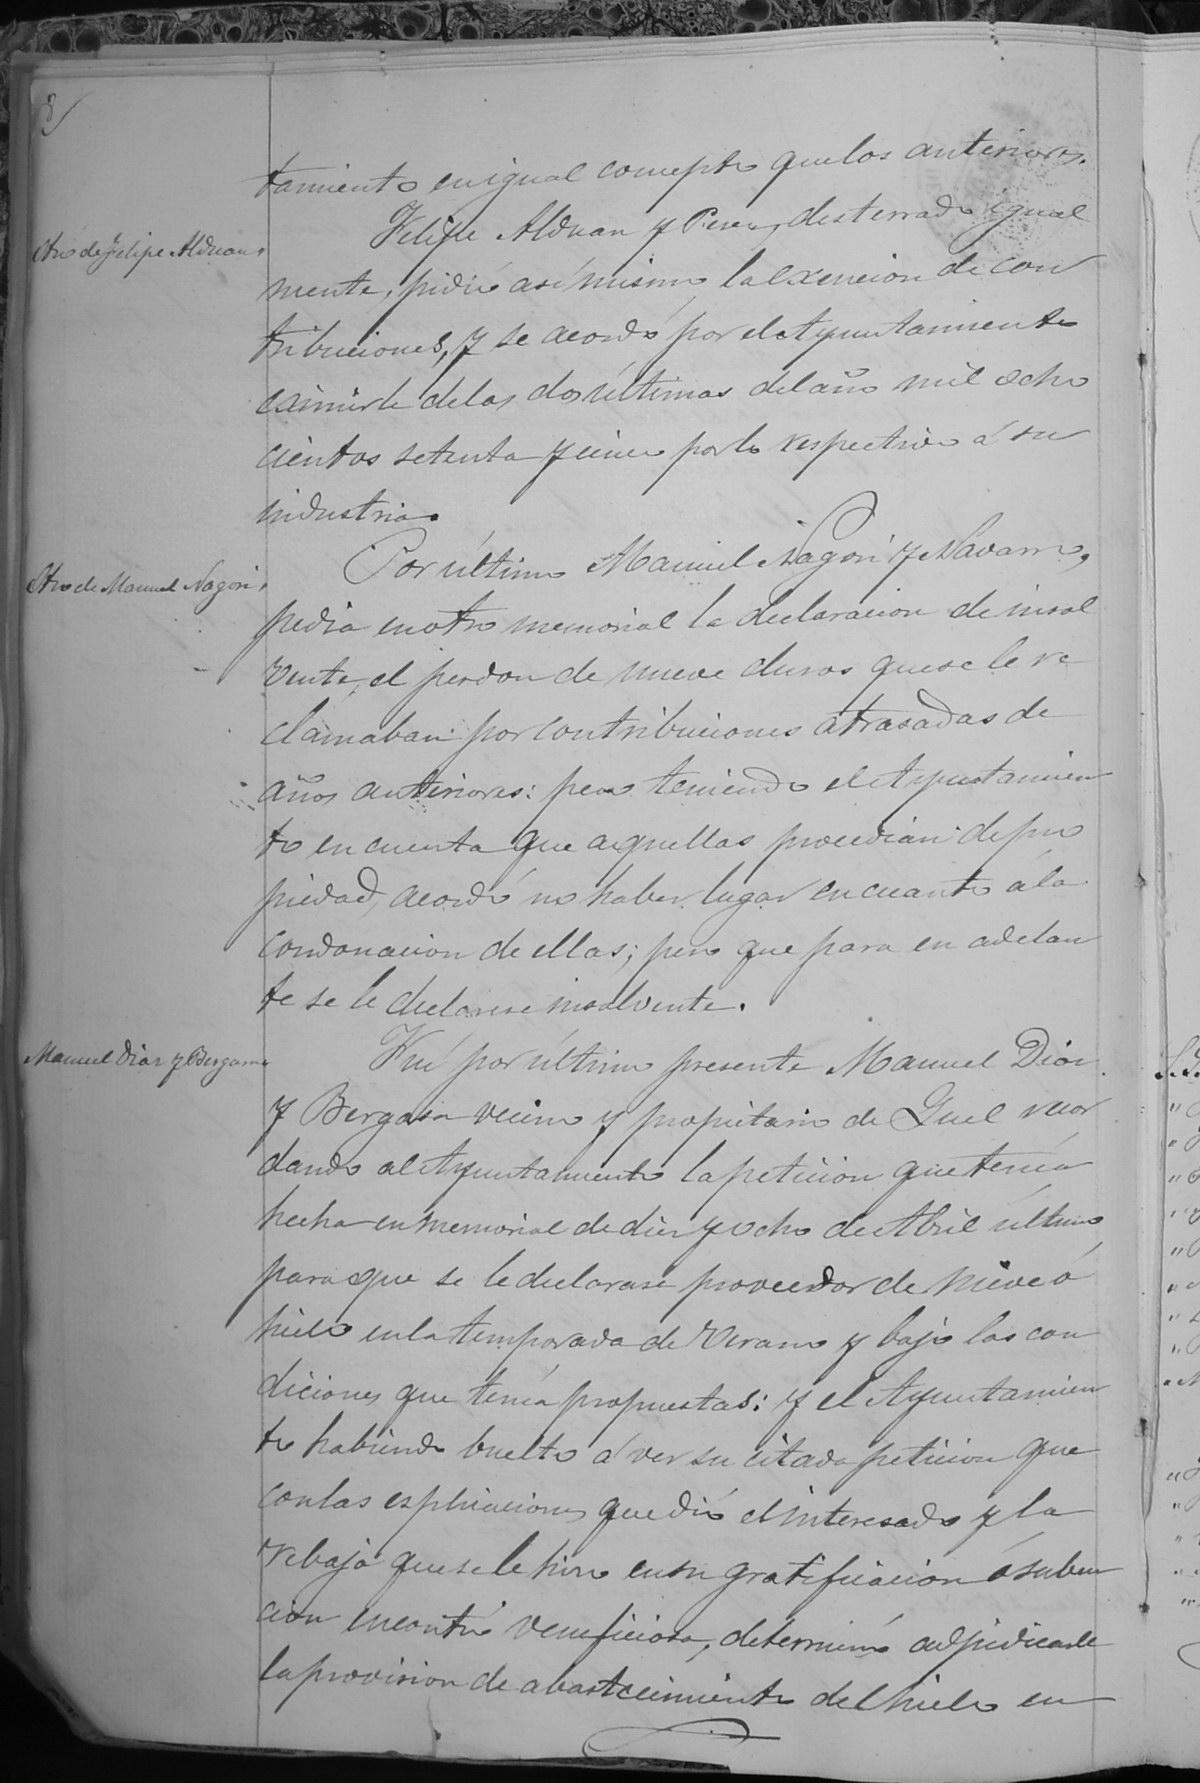 8
tamiento en igual concepto que los anteriores.
Otro de Felipe Alduan.
Felipe Alduan y Perez, desterrado igual
mente, pidió asi mismo la exencion de con
tribuciones, y se acordó por el Ayuntamiento
eximirle de las dos últimas del año mil ocho
cientos setenta y cinco por lo respectivo á su
industria.
Otro de Manuel Nagori.
Por último Manuel Nagori y Navarro,
pedia en otro memorial la declaracion de insol
vente, el perdon de nueve duros que se le re
clamaban por contribuciones atrasadas de
años anteriores: pero teniendo el Ayuntamien
to en cuenta que aquellas procedian de pro
piedad, acordó no haber lugar en cuanto á la
condonacion de ellas; pero que para en adelan
te se le declarase insolvente.
Manuel Diaz y Bergasa
Fué por último presente Manuel Diaz
y Bergasa vecino y propietario de Quel recor
dando al Ayuntamiento la peticion que tenía
hecha en memorial de diez y ocho de Abril último
para que se le declarase proveedor de nieve ó
hielo en la temporada de Verano y bajo las con
diciones que tenía propuestas: y el Ayuntamien
to habiendo buelto á ver su citada peticion que
con las esplicaciones que dió el interesado y la
rebaja que se le hizo en su gratificacion ó suben
cion encontró veneficiosa, determinó adjudicarle
la provision de abastecimiento del hielo en